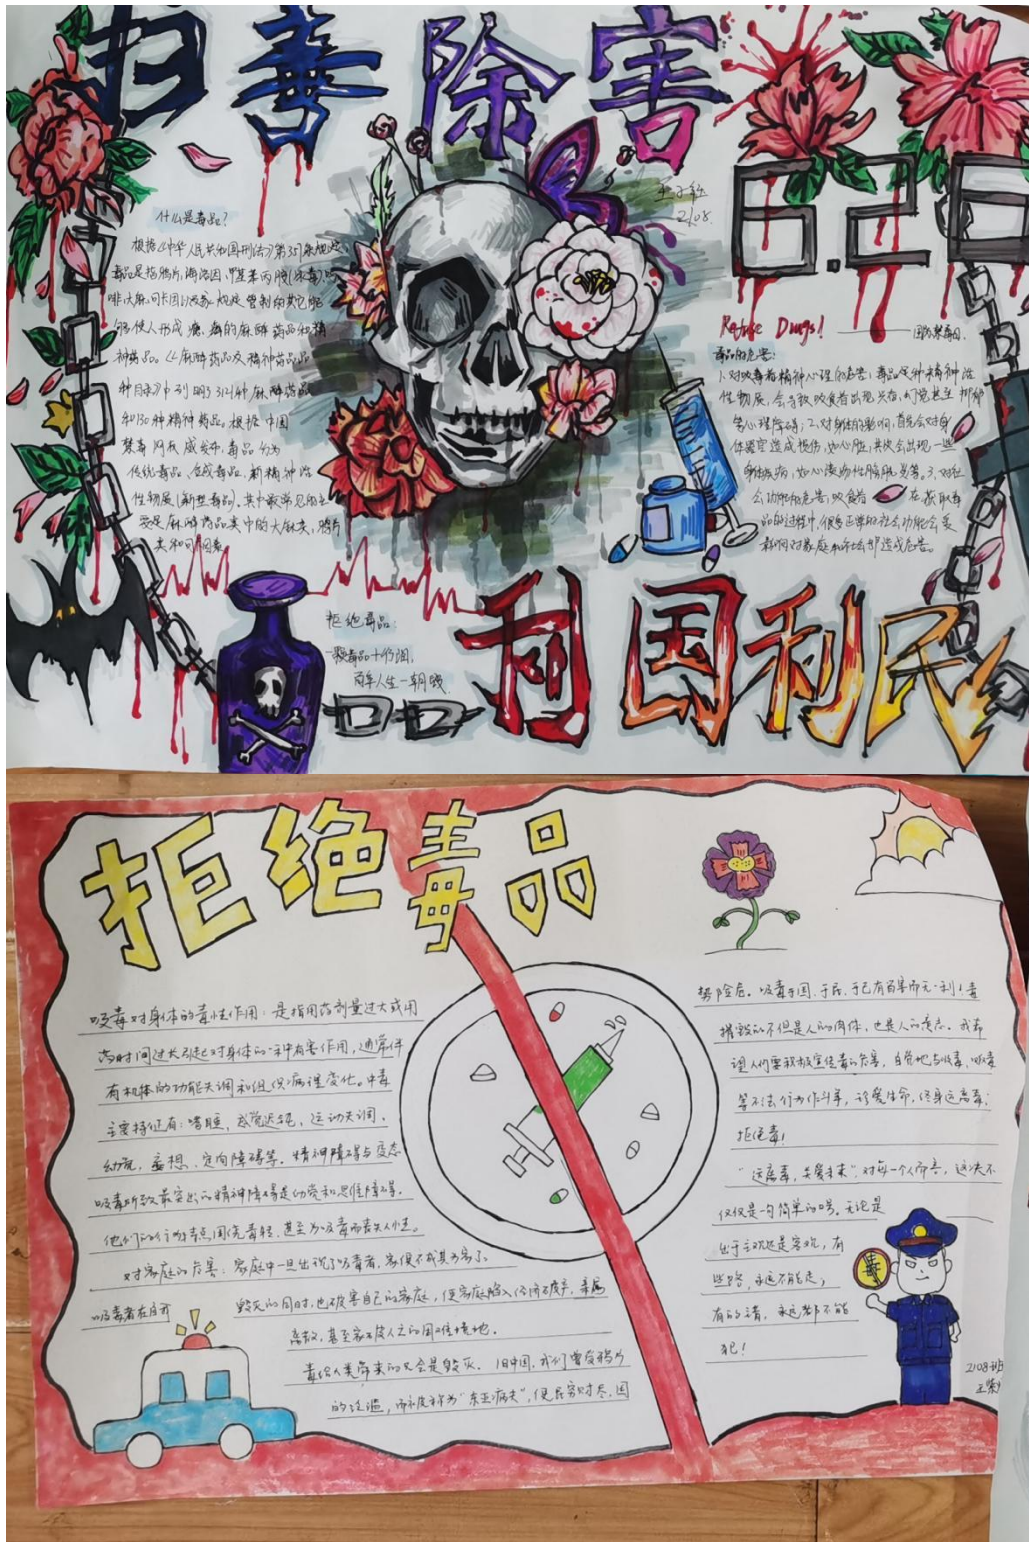 扫毒除害
6.26
王子钰
2108
什么是毒品?
根据《中华人民共和国刑法》第357条规定
毒品是指鸦片、海洛因、甲基苯丙胺(冰毒)、吗
啡、大麻、可卡因以及国家规定管制的其它能
够使人形成瘾癖的麻醉药品和精
神药品。《麻醉药品及精神药品品
种目录》中列明了121种麻醉药品
和130种精神药品。根据中国
禁毒网权威发布,毒品分为
传统毒品、合成毒品、新精神活
性物质(新型毒品)。其中最常见的主
要是麻醉药品类中的大麻类、鸦片
类和可卡因类
Refuse Drugs!
国际禁毒日
毒品的危害:
1.对吸毒者精神心理的危害:毒品是种精神活
性物质,会导致吸食者出现兴奋、幻觉甚至抑郁
等心理障碍;2.对身体的影响,首先会对身
体器官造成损伤,如心脏,其次会出现一些
身体疾病,如心源性膀胱炎等。3.对社
会功能的危害:吸食者在获取毒
品的过程中,很多正常的社会功能会受
影响对家庭和社会都造成危害。
拒绝毒品:
一颗毒品十行泪,
百年人生一朝毁
利国利民
拒绝毒品
吸毒对身体的毒性作用:是指用药剂量过大或用
药时间过长引起对身体的一种有害作用,通常伴
有机体的功能失调和组织病理变化。中毒
主要特征有:嗜睡、感觉迟钝、运动失调、
幻觉、妄想、定向障碍等。精神障碍与变态
吸毒所致最突出的精神障碍是幻觉和思维障碍。
他们的行为特点围绕毒转,甚至为吸毒而丧失人性。
对家庭的危害:家庭中一旦出现了吸毒者,家便不成其为家了。
吸毒者在自我
毁灭的同时,也破害自己的家庭,使家庭陷入经济破产、亲属
离散、甚至家破人亡的困难境地。
毒给人类带来的只会是毁灭。旧中国,我们曾受鸦片
的泛滥,而被称为“东亚病夫”,使民穷财尽,国
势险危。吸毒于国、于民、于己有百害而无一利!毒
摧毁的不但是人的肉体,也是人的意志。我希
望人们要积极宣传毒的危害,自觉地与贩毒、吸毒
等不法行为作斗争,珍爱生命,终身远离毒;
拒绝毒!
“远离毒,关爱未来”,对每一个人而言,这决不
仅仅是一句简单的口号。无论是
出于主观还是客观,有
些路,永远不能走;
有的错,永远都不能
犯!
毒
2108班